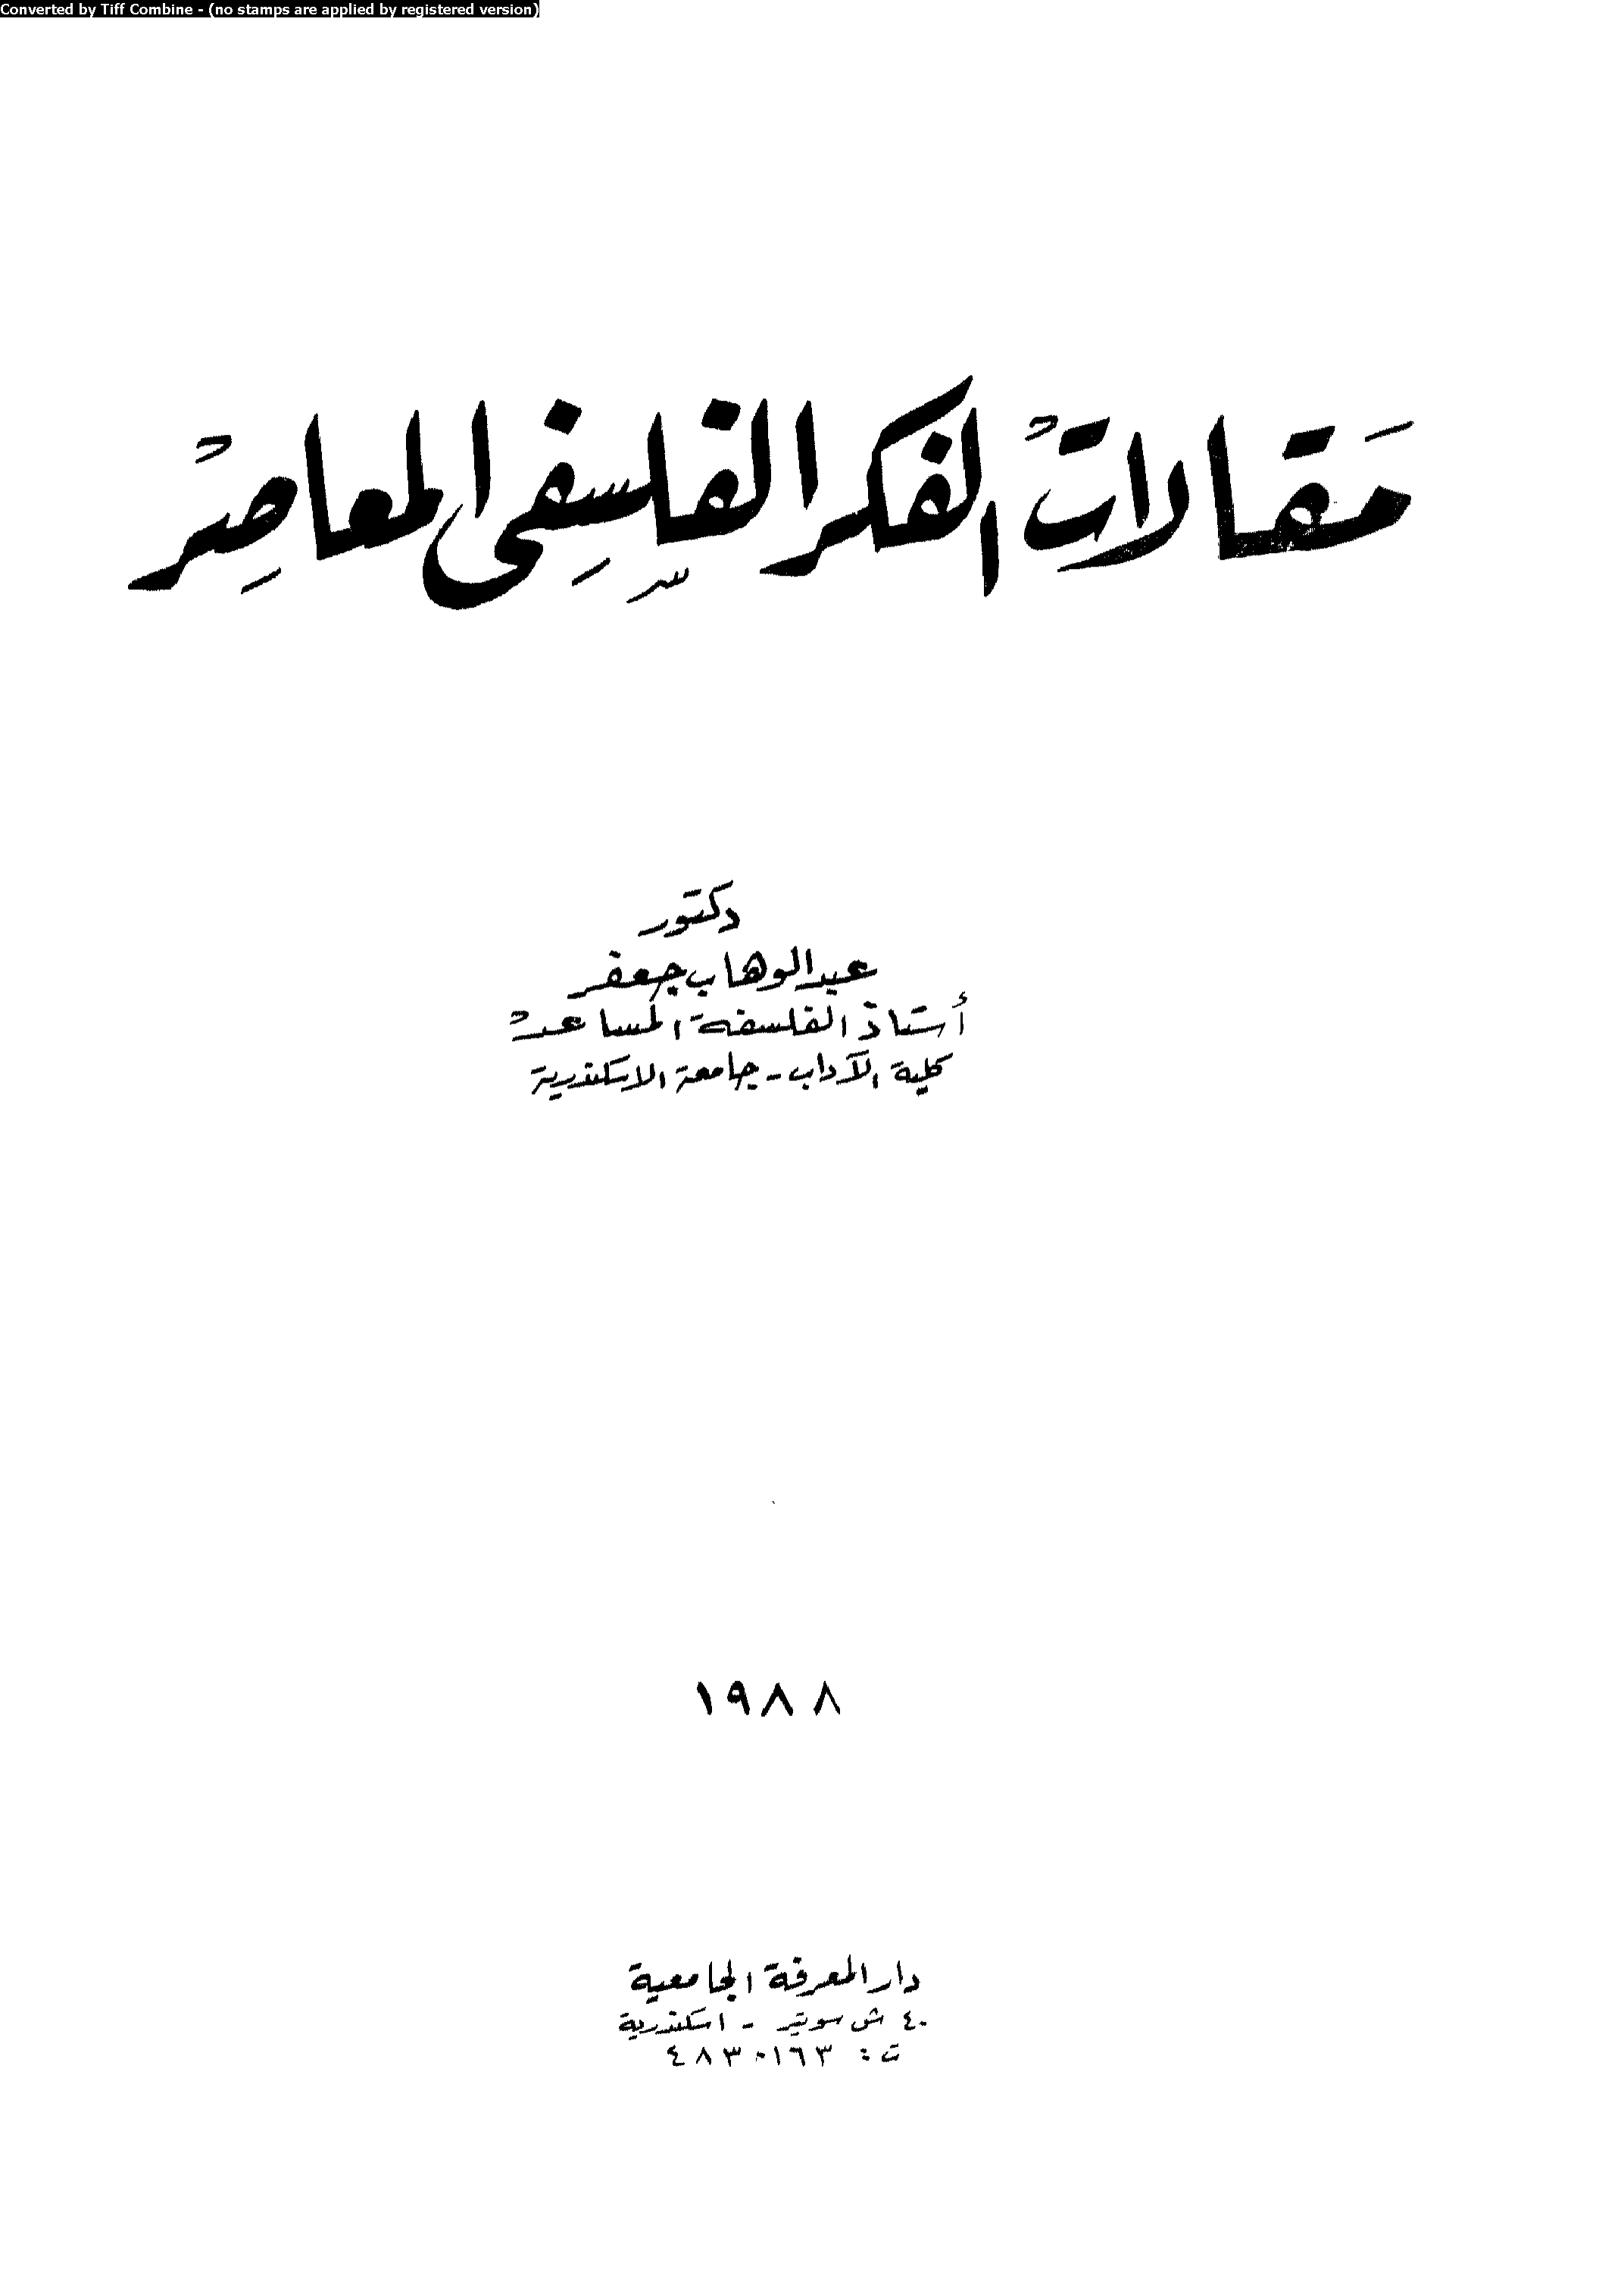 Converted by Tiff Combine - (no stamps are applied by registered version)
مَقالاتُ الفكر الفلسِفِى المعاصِرْ
دكتور
عبد الوهاب جعفر
أستاذ الفلسفة المساعد
كلية الآداب - جامعة الاسكندرية
١٩٨٨
دار المعرفة الجامعية
٤٠ ش سوتير - اسكندرية
ت : ٤٨٣٠١٦٣